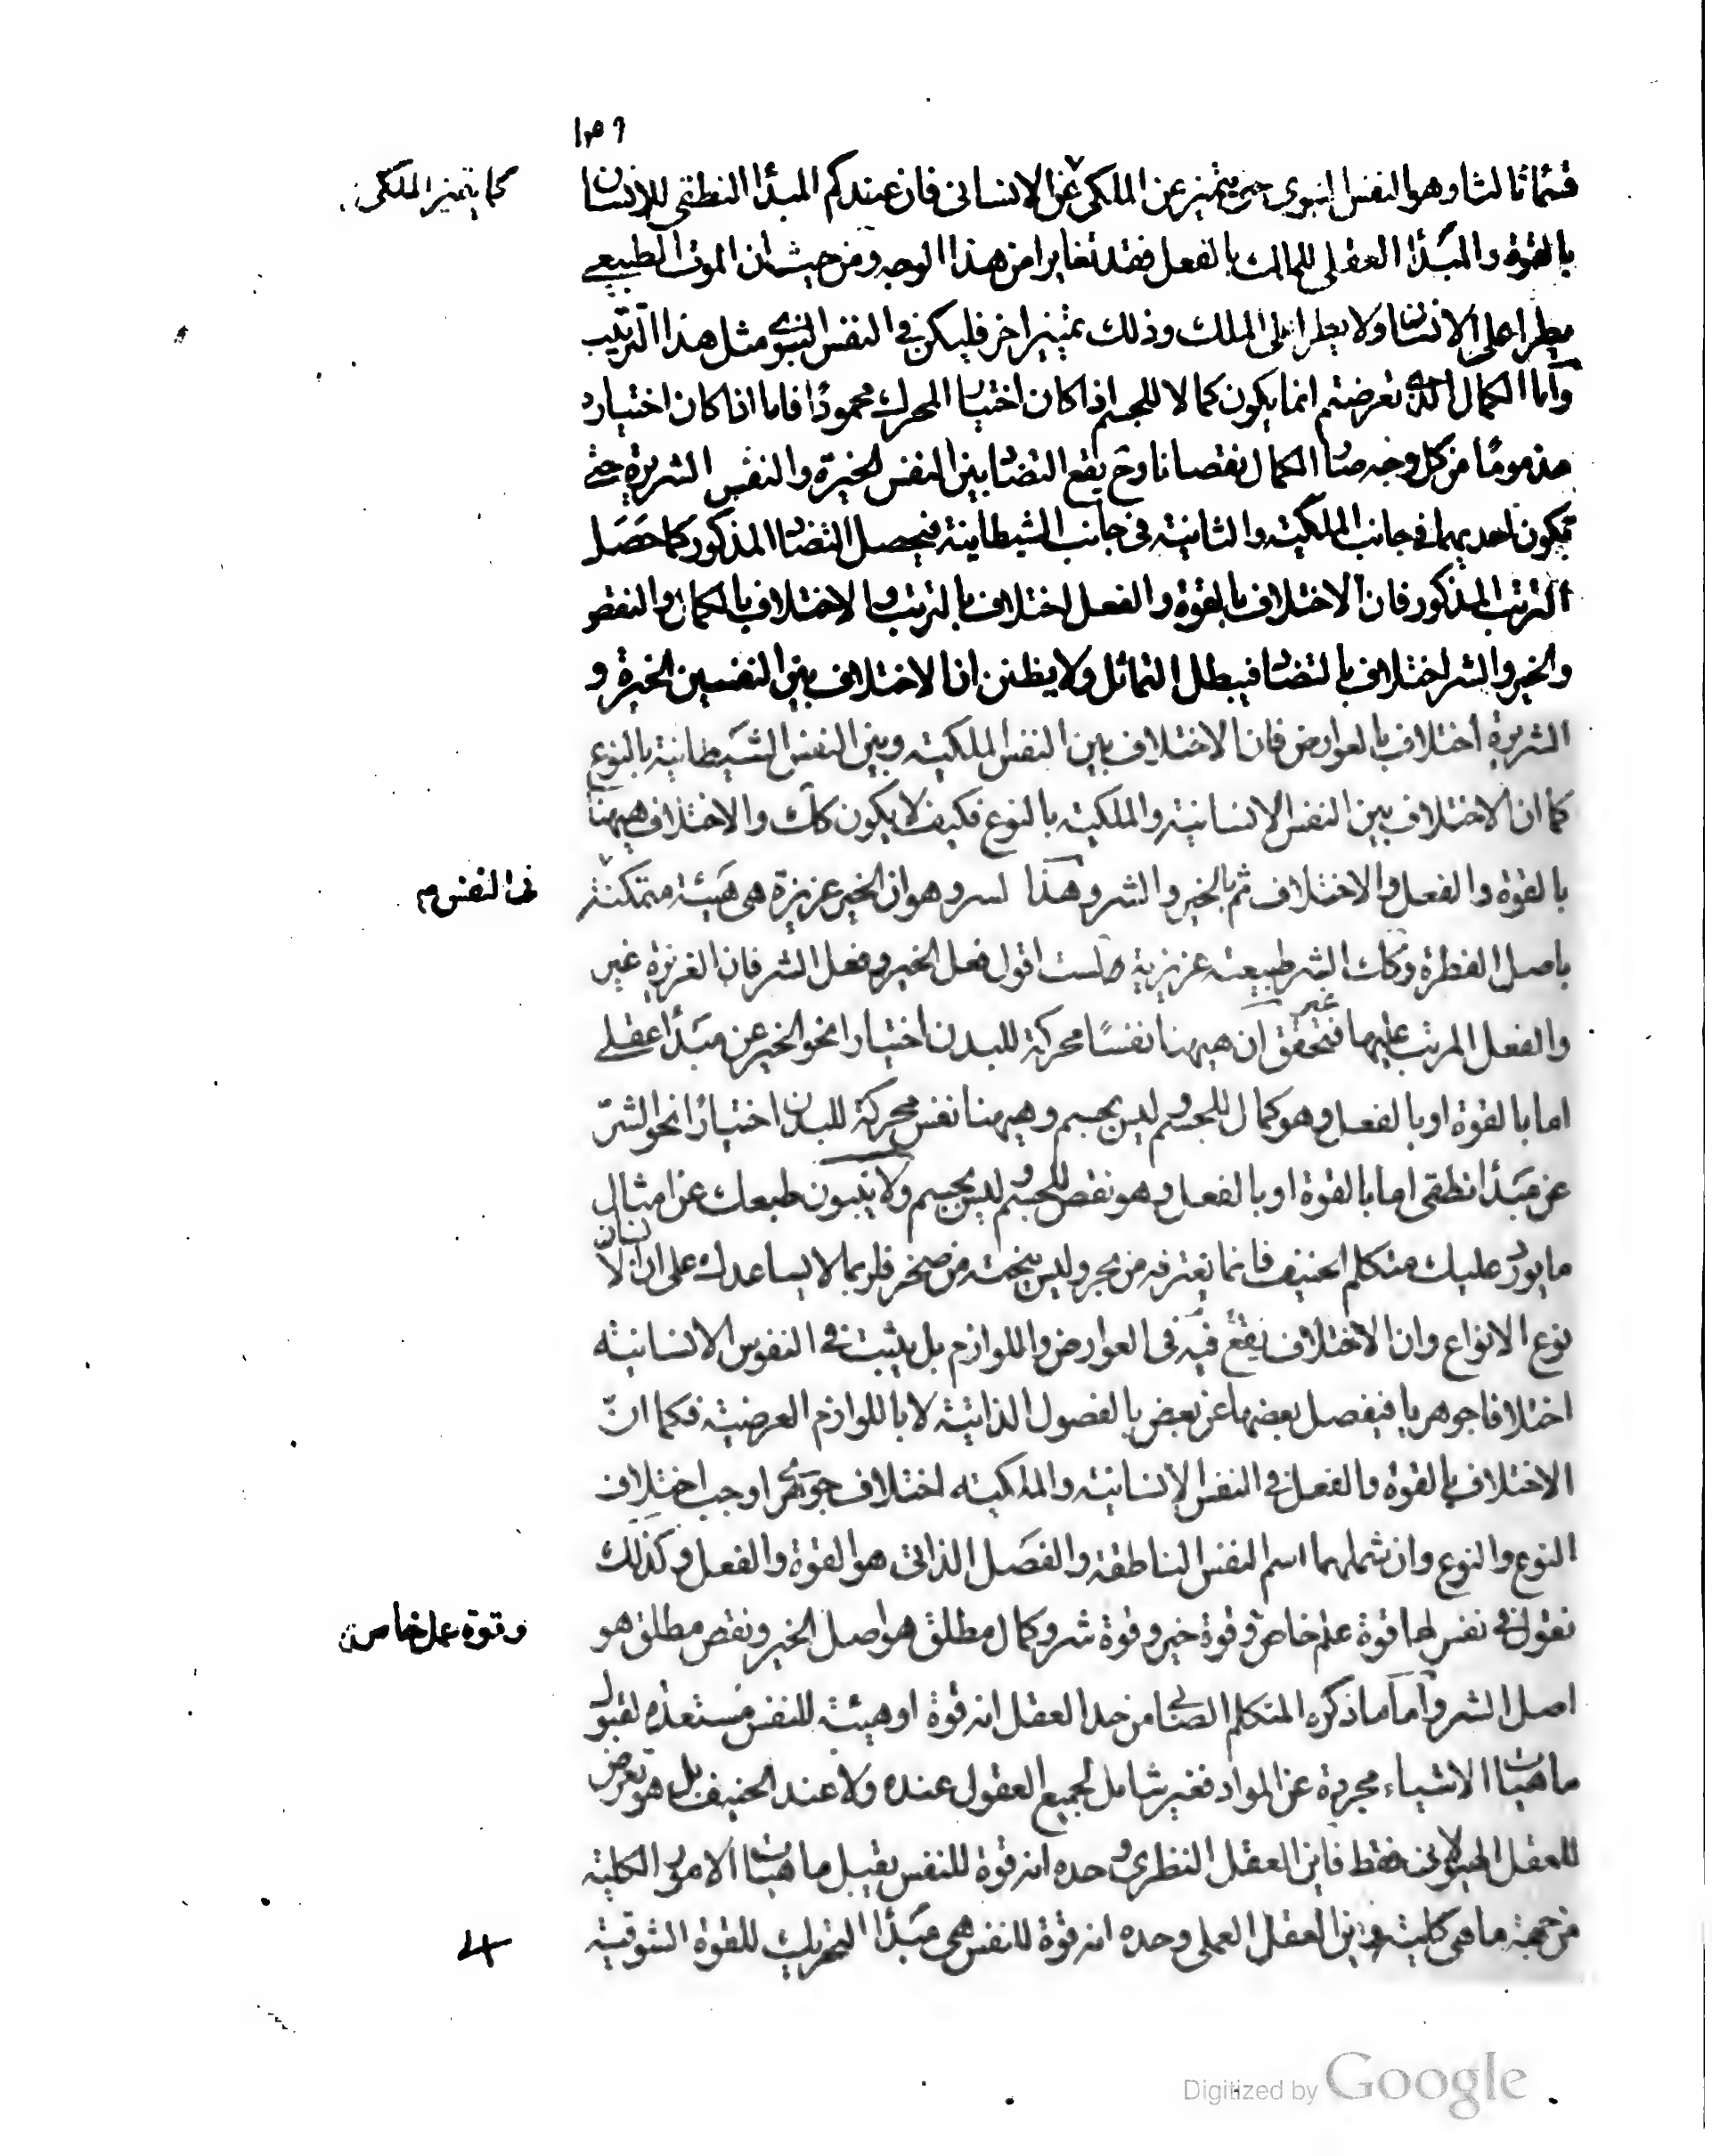 ١٥٩
قسما ثالثا وهو النفس النبوي حتى يتميز عن الملكي عن الانساني فان عندكم المبدأ النطقي للانسان
كما يتميز الملكي
بالقوة والمبدأ العقلي للملك بالفعل فقد تغايرا من هذا الوجه ومن حيث ان الموت الطبيعي
يطرا على الانسان ولا يطرا على الملك وذلك تميز اخر فليكن في النفس النبوي مثل هذا الترتيب
واما الكمال الذي تعرضتم انما يكون كمالا للجسم اذا كان اختيار المحرك محمودًا فاما اذا كان اختياره
مذمومًا من كل وجه صار الكمال نقصانا وح يقع التضاد بين النفس الخيرة والنفس الشريرة حتى
تكون احديهما في جانب الملكية والثانية في جانب الشيطانية فيحصل التضاد المذكور كما حصل
الترتب المذكور فان الاختلاف بالقوة والفعل اختلاف بالترتب والاختلاف بالكمال والنقص
والخير والشر اختلاف بالتضاد فيبطل التماثل ولا يظنن ان الاختلاف بين النفسين الخيرة و
الشريرة اختلاف بالعوارض فان الاختلاف بين النفس الملكية وبين النفس الشيطانية بالنوع
كما ان الاختلاف بين النفس الانسانية والملكية بالنوع فكيف لا يكون كك والاختلاف هيهنا
بالقوة والفعل والاختلاف ثم بالخير والشر وهذا لسر وهو ان الخير عزيزة هى هيئة متمكنة
في النفس م
باصل الفطرة وكك الشر طبيعة عزيزية ولست اقول فعل الخير وفعل الشر فان الغريزة غير
والفعل المرتب عليها غير فتحقق ان هيهنا نفسًا محركة للبدن اختيارا نحو الخير عن مبدأ عقلي
اما بالقوة او بالفعل وهو كمال للجسم وليس بجسم وهيهنا نفس محركة للبدن اختيارًا نحو الشر
عن مبدأ نطقى اما بالقوة او بالفعل وهو نقص للجسم وليس بجسم ولا ينبون طبعك عن امثال
ما يورد عليك متكلم الحنيف فانما يغترفه من بحر وليس ينحته من صخر فلربما لا يساعدك على ان الانسان
نوع الانواع وان الاختلاف يقع فيه في العوارض واللوازم بل يثبت في النفوس الانسانية
اختلافا جوهريا فيفصل بعضها عن بعض بالفصول الذاتية لا باللوازم العرضية فكما ان
الاختلاف بالقوة والفعل في النفس الانسانية والملكية اختلاف جوهري اوجب اختلاف
النوع والنوع وان شملهما اسم النفس الناطقة والفصل الذاتي هو القوة والفعل وكذلك
نقول في نفس لها قوة علم خاص وقوة خير وقوة شر وكمال مطلق هو اصل الخير ونقص مطلق هو
وقوة عمل خاص
اصل الشر واما ما ذكره المتكلم الصابي من حد العقل انه قوة او هيئة للنفس مستعدة لقبول
ماهيات الاشياء مجردة عن المواد فغير شامل لجميع العقول عنده ولا عند الحنيف بل هو تعرض
للعقل الهيولاني فقط فاين العقل النظري وحده انه قوة للنفس يقبل ماهيات الامور الكلية
من جهة ما هي كلية واين العقل العملي وحده انه قوة للنفس هى مبدأ التحريك للقوة الشوقية
Digitized by Google